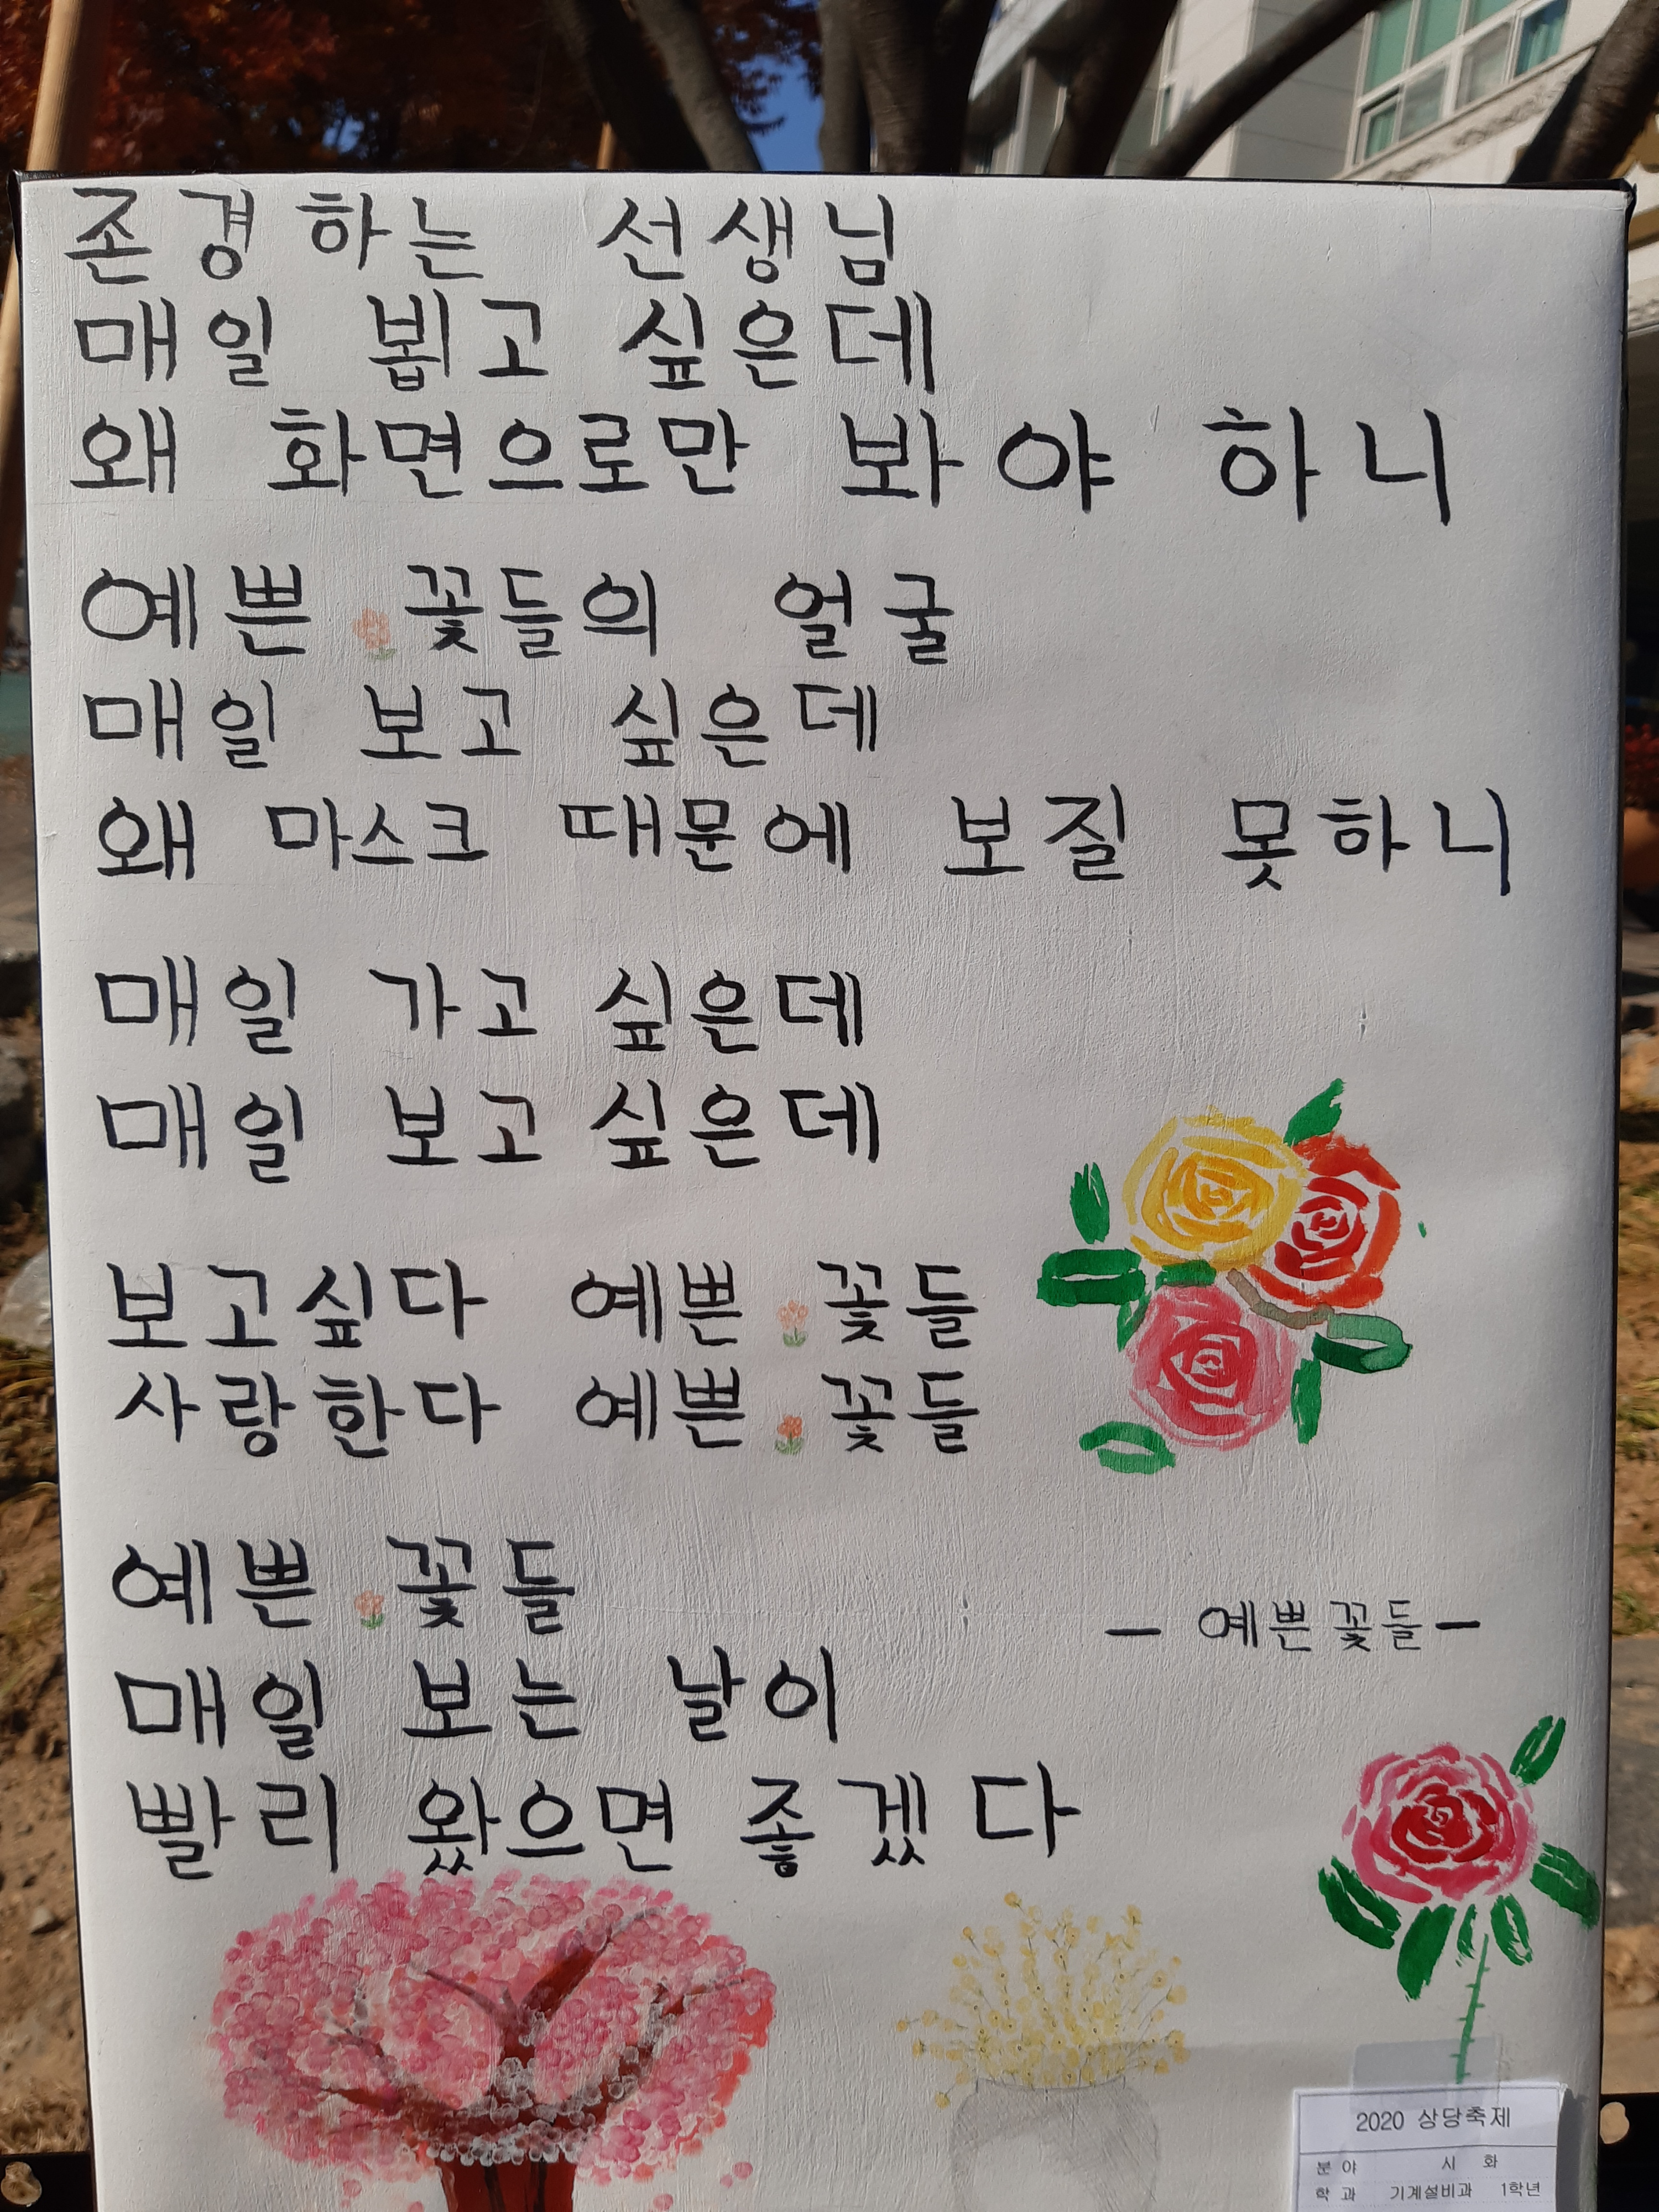 존경하는 선생님
매일 뵙고 싶은데
왜 화면으로만 봐야 하니
예쁜 꽃들의 얼굴
매일 보고 싶은데
왜 마스크 때문에 보질 못하니
매일 가고 싶은데
매일 보고 싶은데
보고싶다 예쁜 꽃들
사랑한다 예쁜 꽃들
예쁜 꽃들
매일 보는 날이
빨리 왔으면 좋겠다
- 예쁜 꽃들 -
2020 상당축제
분 야 시 화
학 과 기계설비과 1학년